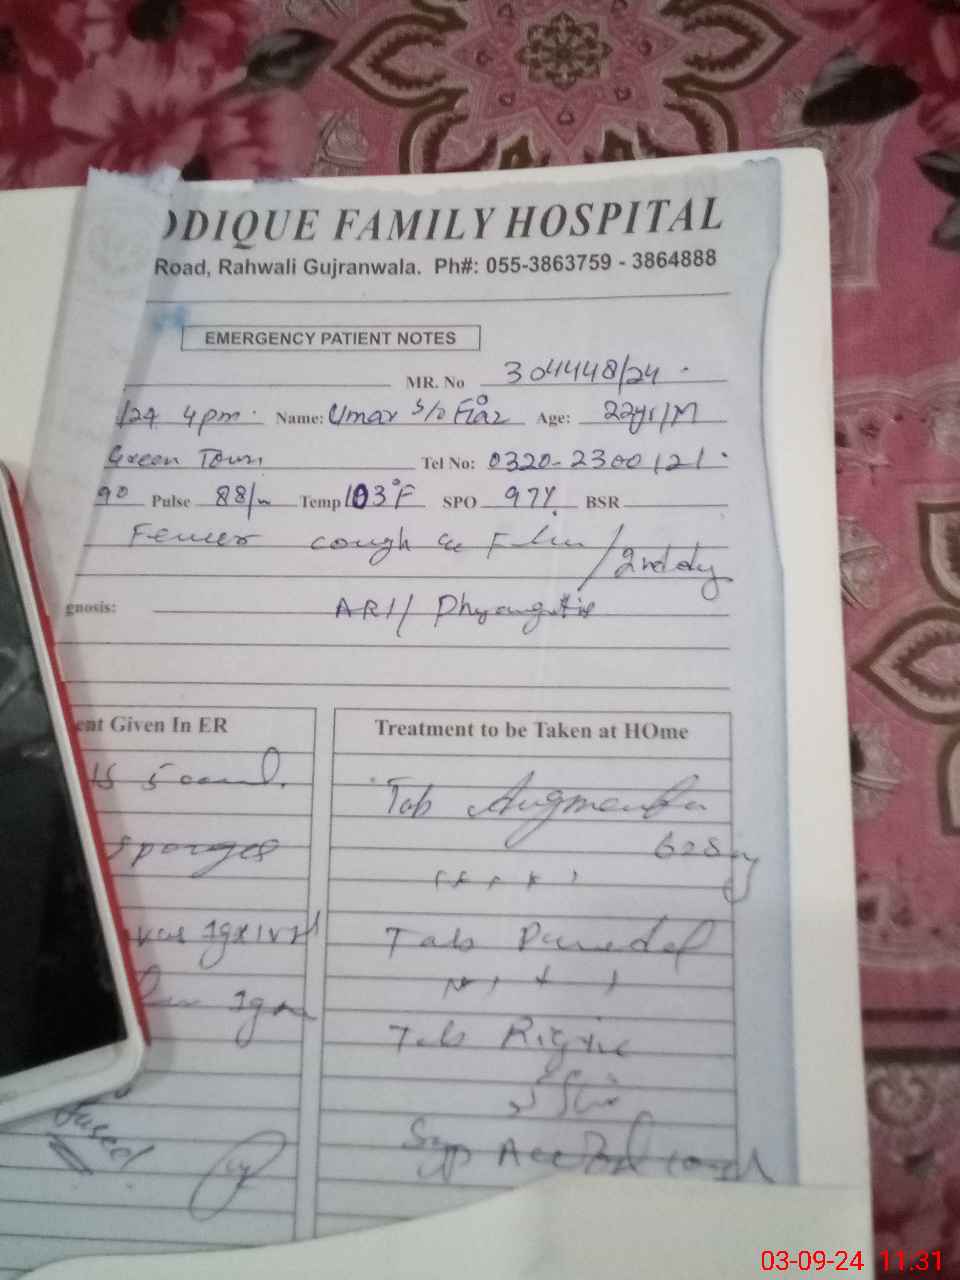 DDIQUE FAMILY HOSPITAL
Road, Rahwali Gujranwala. Ph#: 055-3863759 - 3864888
EMERGENCY PATIENT NOTES
MR. No 304448/24
/24 4pm Name: Umar S/o Fiaz Age: 22yr/M
Green Town Tel No: 0320-2300121
90 Pulse 88/m Temp 103°F SPO 97% BSR
Fever cough & Flu / 2nd day
gnosis: ARI/ Phyrangitis
ent Given In ER
Treatment to be Taken at HOme
Tab Augmentin
625mg
sponges
1gx1v
Tab Panadol
1gm
Tab Rigix
Syp Acefyl cough
03-09-24 11.31